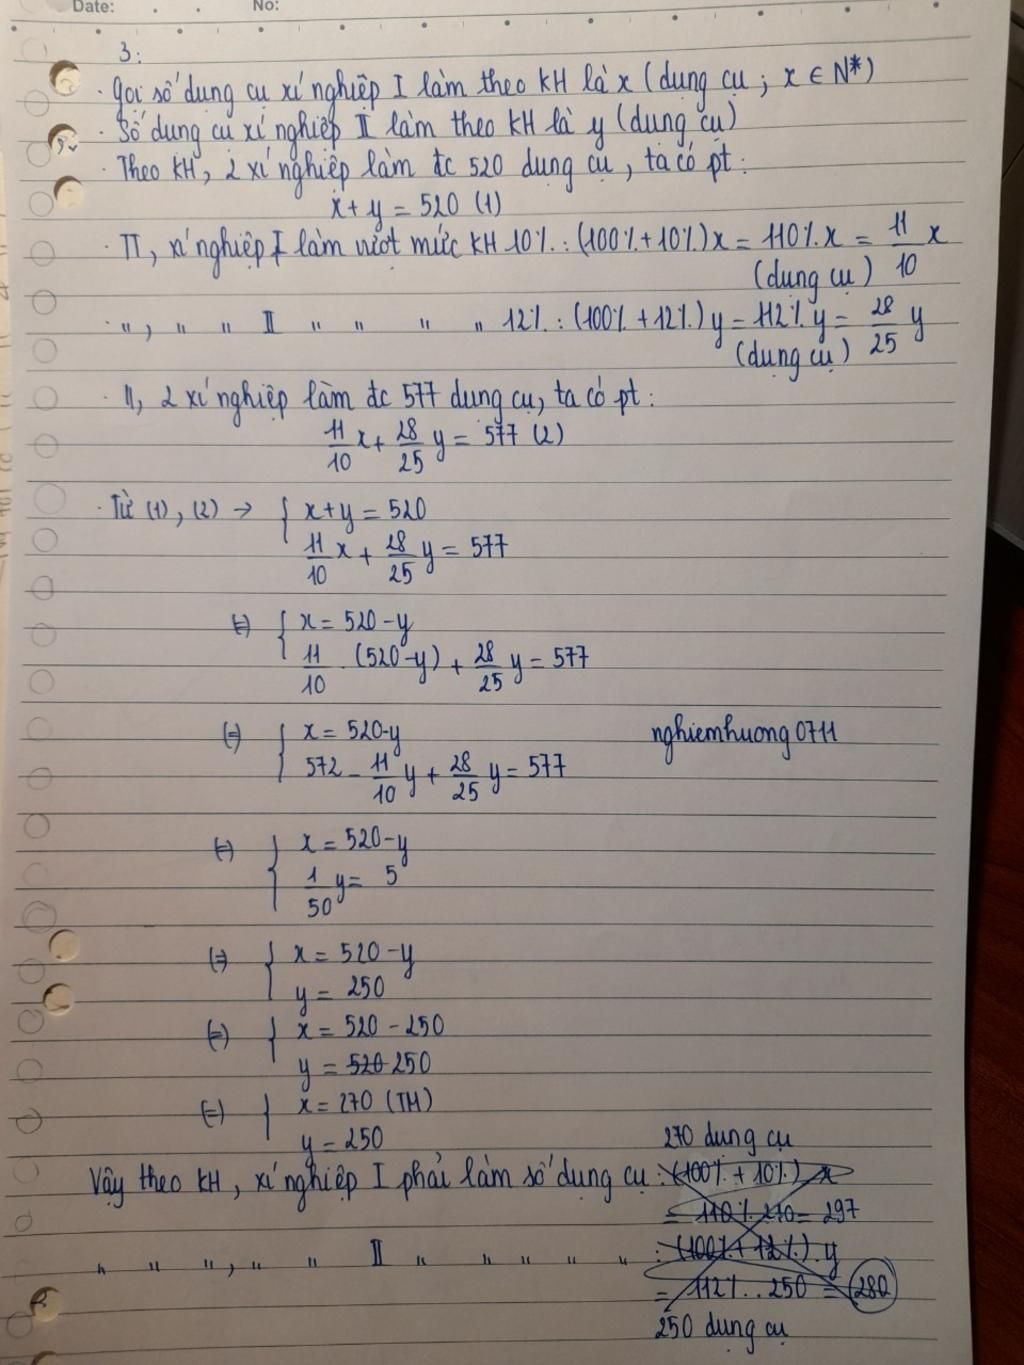 Date: . . No:
3:
· Gọi số dụng cụ xí nghiệp I làm theo KH là x (dụng cụ; x ∈ N*)
· Số dụng cụ xí nghiệp II làm theo KH là y (dụng cụ)
· Theo KH, 2 xí nghiệp làm đc 520 dụng cụ, ta có pt:
x + y = 520 (1)
· TT, xí nghiệp I làm vượt mức KH 10% : (100% + 10%)x = 110%.x = 11/10 x
(dụng cụ)
· ", " " II " " " " 12% : (100% + 12%)y = 112%.y = 28/25 y
(dụng cụ)
· ", 2 xí nghiệp làm đc 577 dụng cụ, ta có pt:
11/10 x + 28/25 y = 577 (2)
· Từ (1), (2) → { x + y = 520
11/10 x + 28/25 y = 577
(=) { x = 520 - y
11/10 . (520 - y) + 28/25 y = 577
(=) { x = 520 - y nghiemhuong0711
572 - 11/10 y + 28/25 y = 577
(=) { x = 520 - y
1/50 y = 5
(=) { x = 520 - y
y = 250
(=) { x = 520 - 250
y = 520 250
(=) { x = 270 (TM)
y = 250
270 dụng cụ
Vậy theo KH, xí nghiệp I phải làm số dụng cụ : (100% + 10%) x
= 110%.270 = 297
" " ", " " II " " " " " : (100% + 12%).y
= 112%..250 = 280
250 dụng cụ